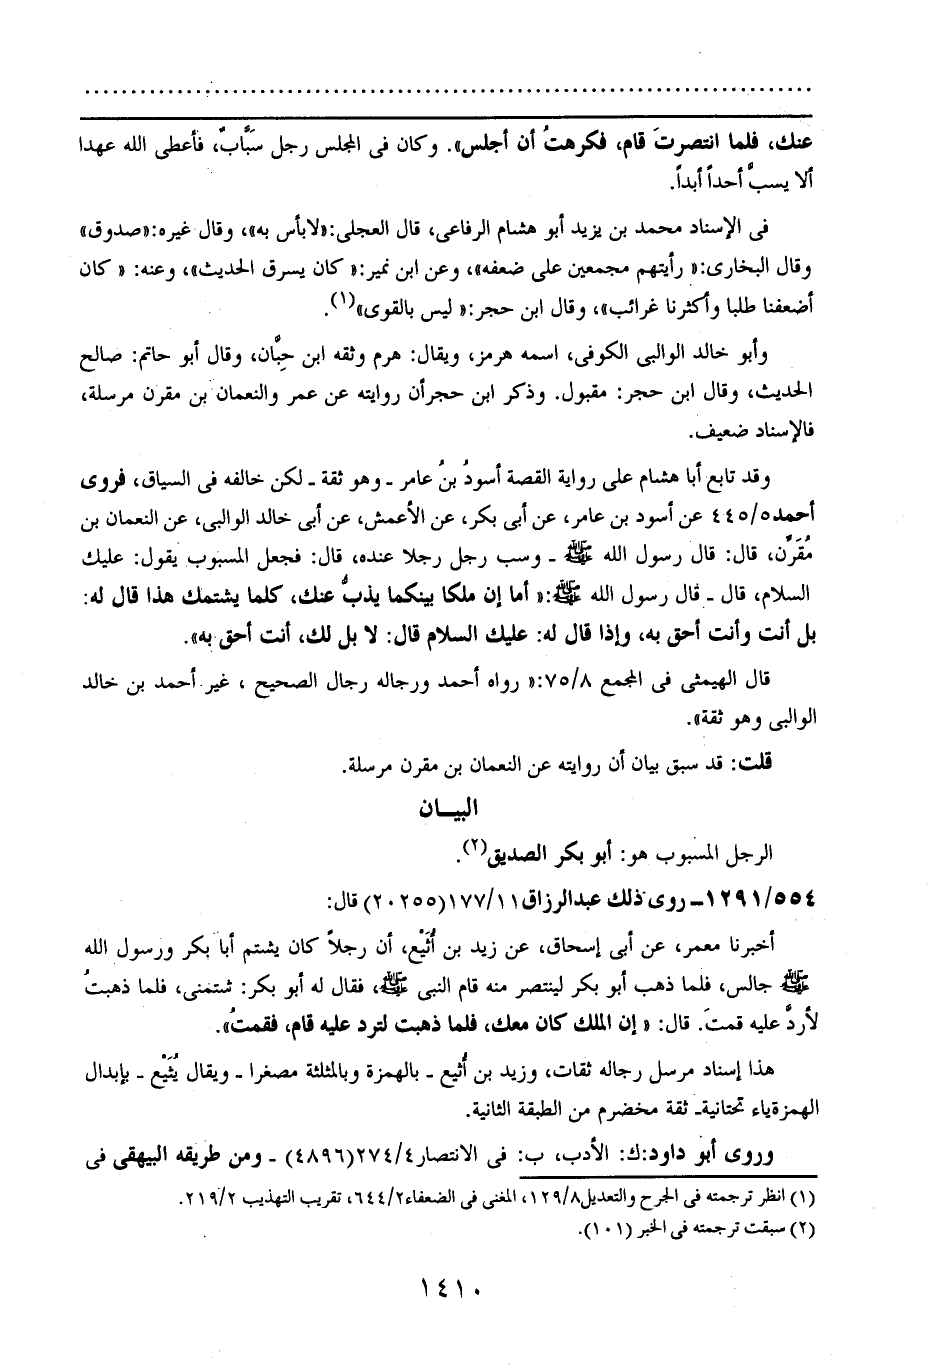 عنك، فلما انتصرتَ قام، فكرهتُ أن أجلس». وكان فى المجلس رجل سَبَّابٌ، فأعطى الله عهدا
ألا يسبَّ أحداً أبداً.
فى الإسناد محمد بن يزيد أبو هشام الرفاعى، قال العجلى:«لابأس به»، وقال غيره:«صدوق»
وقال البخارى:« رأيتهم مجمعين على ضعفه»، وعن ابن نمير:« كان يسرق الحديث»، وعنه: « كان
أضعفنا طلبا وأكثرنا غرائب»، وقال ابن حجر:« ليس بالقوى»(١).
وأبو خالد الوالبى الكوفى، اسمه هرمز، ويقال: هرم وثقه ابن حِبَّان، وقال أبو حاتم: صالح
الحديث، وقال ابن حجر: مقبول. وذكر ابن حجرأن روايته عن عمر والنعمان بن مقرن مرسلة،
فالإسناد ضعيف.
وقد تابع أبا هشام على رواية القصة أسودُ بنُ عامر ـ وهو ثقة ـ لكن خالفه فى السياق، فروى
أحمد٤٤٥/٥ عن أسود بن عامر، عن أبى بكر، عن الأعمش، عن أبى خالد الوالبى، عن النعمان بن
مُقَرِّن، قال: قال رسول الله ﷺ ـ وسب رجل رجلا عنده، قال: فجعل المسبوب يقول: عليك
السلام، قال ـ قال رسول الله ﷺ:« أما إن ملكا بينكما يذبُّ عنك، كلما يشتمك هذا قال له:
بل أنت وأنت أحق به، وإذا قال له: عليك السلام قال: لا بل لك، أنت أحق به».
قال الهيمثى فى المجمع ٧٥/٨:« رواه أحمد ورجاله رجال الصحيح ، غير أحمد بن خالد
الوالبى وهو ثقة».
قلت: قد سبق بيان أن روايته عن النعمان بن مقرن مرسلة.
البيـــان
الرجل المسبوب هو: أبو بكر الصديق(٢).
١٢٩١/٥٥٤ـ روى ذلك عبدالرزاق١٧٧/١١(٢٠٢٥٥) قال:
أخبرنا معمر، عن أبى إسحاق، عن زيد بن أُثَيْع، أن رجلاً كان يشتم أبا بكر ورسول الله
ﷺ جالس، فلما ذهب أبو بكر لينتصر منه قام النبى ﷺ، فقال له أبو بكر: شتمنى، فلما ذهبتُ
لأردَّ عليه قمتَ. قال: « إن الملك كان معك، فلما ذهبت لترد عليه قام، فقمتُ».
هذا إسناد مرسل رجاله ثقات، وزيد بن أُثيع ـ بالهمزة وبالمثلثة مصغرا ـ ويقال يُثَيْع ـ بإبدال
الهمزةياء تحتانيةـ ثقة مخضرم من الطبقة الثانية.
وروى أبو داود:ك: الأدب، ب: فى الانتصار٢٧٤/٤(٤٨٩٦) ـ ومن طريقه البيهقى فى
(١) انظر ترجمته فى الجرح والتعديل١٢٩/٨، المغنى فى الضعفاء٦٤٤/٢، تقريب التهذيب ٢١٩/٢.
(٢) سبقت ترجمته فى الخبر (١٠١).
١٤١٠